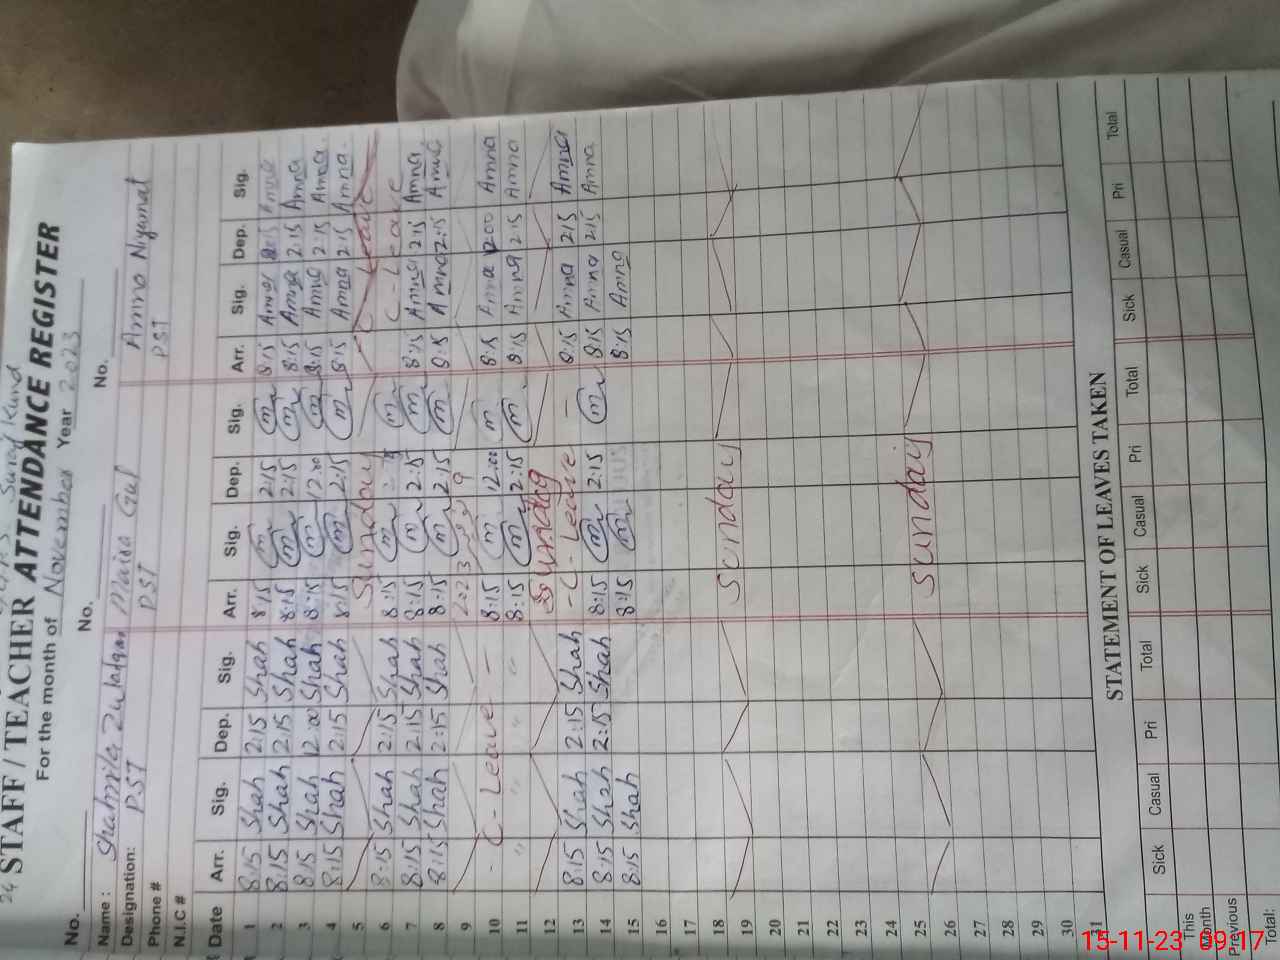 24
STAFF / TEACHER ATTENDANCE REGISTER
For the month of November Year 2023
No. No. No.
Name : Shahnila Zulfiqar Maisa Gul Amna Niyamat
Designation: PST PST PST
Phone #
N.I.C #
Date Arr. Sig. Dep. Sig. Arr. Sig. Dep. Sig. Arr. Sig. Dep. Sig.
1 8:15 Shah 2:15 Shah 8:15 m 2:15 m 8:15 Amna 2:15 Amna
2 8:15 Shah 2:15 Shah 8:15 m 2:15 m 8:15 Amna 2:15 Amna
3 8:15 Shah 12:00 Shah 8:15 m 12:00 m 8:15 Amna 2:15 Amna
4 8:15 Shah 2:15 Shah 8:15 m 2:15 m 8:15 Amna 2:15 Amna
5 Sunday C - Leave
6 8:15 Shah 2:15 Shah 8:15 m m C - Leave
7 8:15 Shah 2:15 Shah 8:15 m 2:15 m 8:15 Amna 2:15 Amna
8 8:15 Shah 2:15 Shah 8:15 m 2:15 m 8:15 Amna 2:15 Amna
9 2023 9
10 - C - Leave - 8:15 m 12:00 m 8:15 Amna 200 Amna
11 " " " " 8:15 m 2:15 m 8:15 Amna 2:15 Amna
12 Sunday
13 8:15 Shah 2:15 Shah - C - Leave - 8:15 Amna 2:15 Amna
14 8:15 Shah 2:15 Shah 8:15 m 2:15 m 8:15 Amna 2:15 Amna
15 8:15 Shah 8:15 m 8:15 Amna
16
17
18 Sunday
19
20
21
22
23
24
25 Sunday
26
27
28
29
30
31
STATEMENT OF LEAVES TAKEN
Sick Casual Pri Total Sick Casual Pri Total Sick Casual Pri Total
This Month
Previous
Total:
15-11-23 09:17